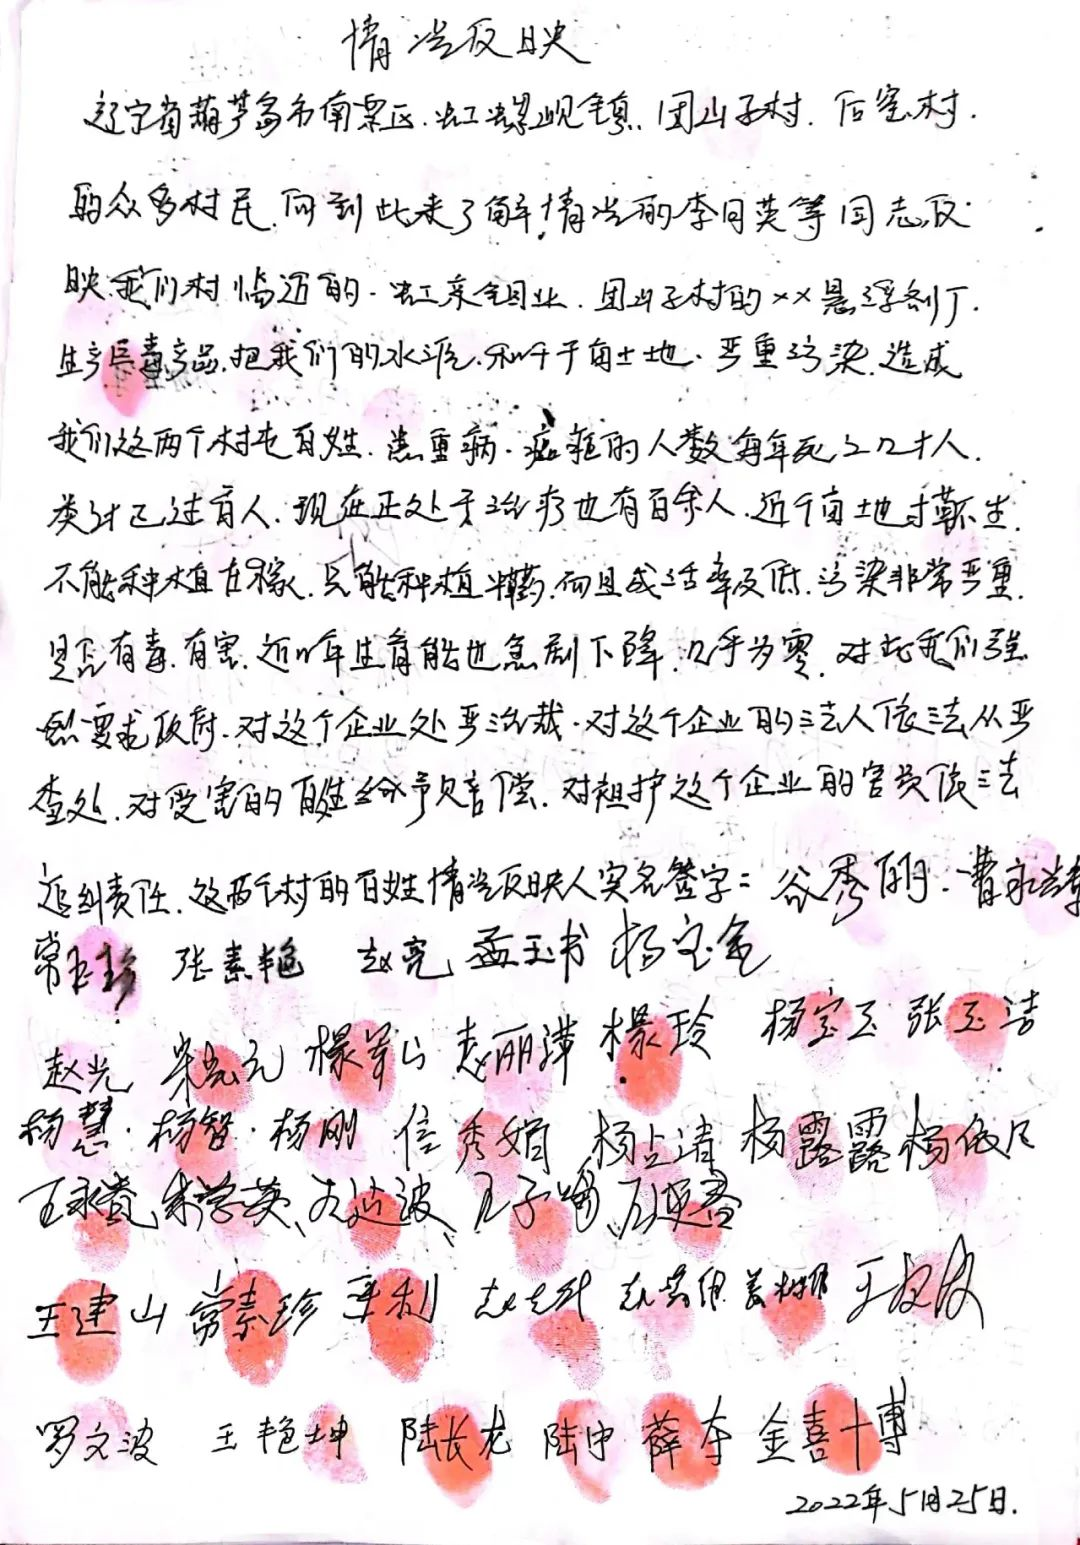 情况反映
辽宁省葫芦岛市南票区.虹螺岘镇.团山子村.后窑村.
的众多村民.向到此来了解情况的李月英等同志反
映.我们村临近的.虹京钼业.团山子村的××悬浮剂厂.
生产巨毒产品.把我们的水源.和千亩土地.严重污染.造成
我们这两个村屯百姓.患重病.癌症的人数每年死亡几十人.
类计已过百人.现在正处于治疗也有百余人.近千亩土地寸草不生.
不能种植庄稼.只能种植中药.而且成活率及低.污染非常严重.
是否有毒.有害.近几年生育能也急剧下降.几乎为零.对此我们强
烈要求政府.对这个企业处严治裁.对这个企业的法人依法从严
查处.对受害的百姓给予赔偿.对袒护这个企业的官员依法
追纠责任.这两个村的百姓情况反映人实名签字: 谷秀
常玉珍 张素艳 赵亮 孟玉书 杨宝金
赵光 赵丽萍 杨宝玉 张玉洁
杨慧.杨智.杨刚 信秀娟 杨 杨露露 杨依
王永贵 朱学英、 波、 王子
王建山 常素珍 辛利 赵 王
罗文波 王艳坤 陆长龙 陆中 薛 金喜博
2022年5月25日.